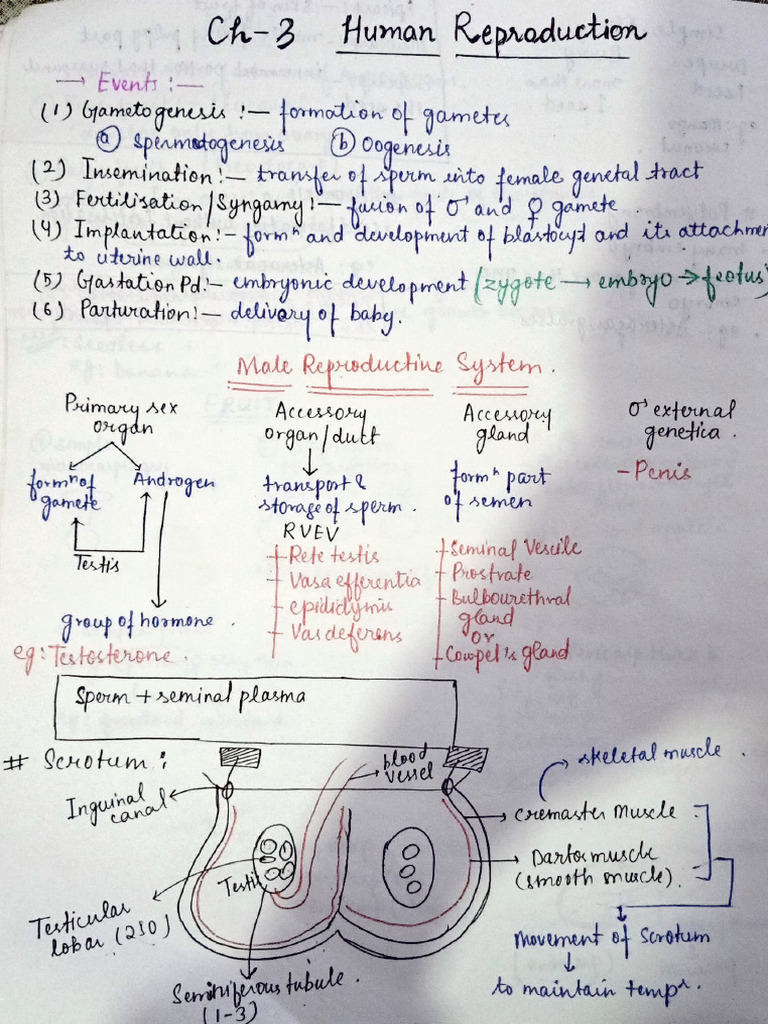 Ch-3 Human Reproduction
→ Events :—
(1) Gametogenesis :— formation of gametes
(a) Spermatogenesis (b) Oogenesis
(2) Insemination :— transfer of sperm into female genetal tract
(3) Fertilisation/Syngamy :— fusion of ♂ and ♀ gamete
(4) Implantation :— formⁿ and development of blastocyst and its attachmen
to uterine wall.
(5) Gastation Pd :— embryonic development (zygote → embryo → feotus)
(6) Parturation :— delivery of baby.
Male Reproductive System.
Primary sex
organ
formⁿ of
gamete
Androgen
Testis
group of hormone.
eg: Testosterone.
Accessory
organ/duct
transport &
storage of sperm.
RVEV
Rete testis
Vasa efferentia
epididymis
Vas deferens
Accessory
gland
formⁿ part
of semen
Seminal Vescile
Prostrate
Bulbourethral
gland
or
Cowpel's gland
♂ external
genetica.
- Penis
Sperm + seminal plasma
# Scrotum :
blood
vessel
skeletal muscle.
Inguinal
canal
cremaster Muscle
Testis
Dartos muscle
(smooth muscle).
Testicular
lobar (250)
Movement of Scrotum
to maintain tempʳ.
Seminiferous tubule.
(1-3)